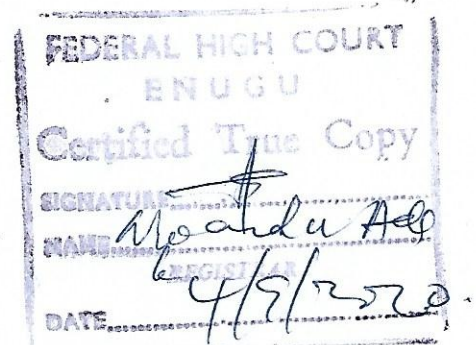 FEDERAL HIGH COURT
ENUGU
Certified True Copy
SIGNATURE
NAME
REGISTRAR
DATE 4/9/2020.